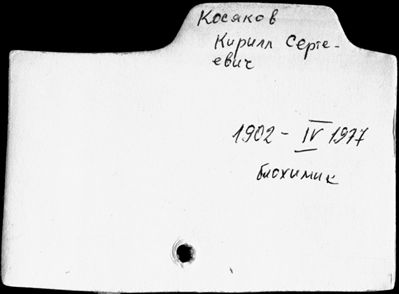 Косяков
Кирилл Серге-
евич
1902 - IV 1977
биохимик